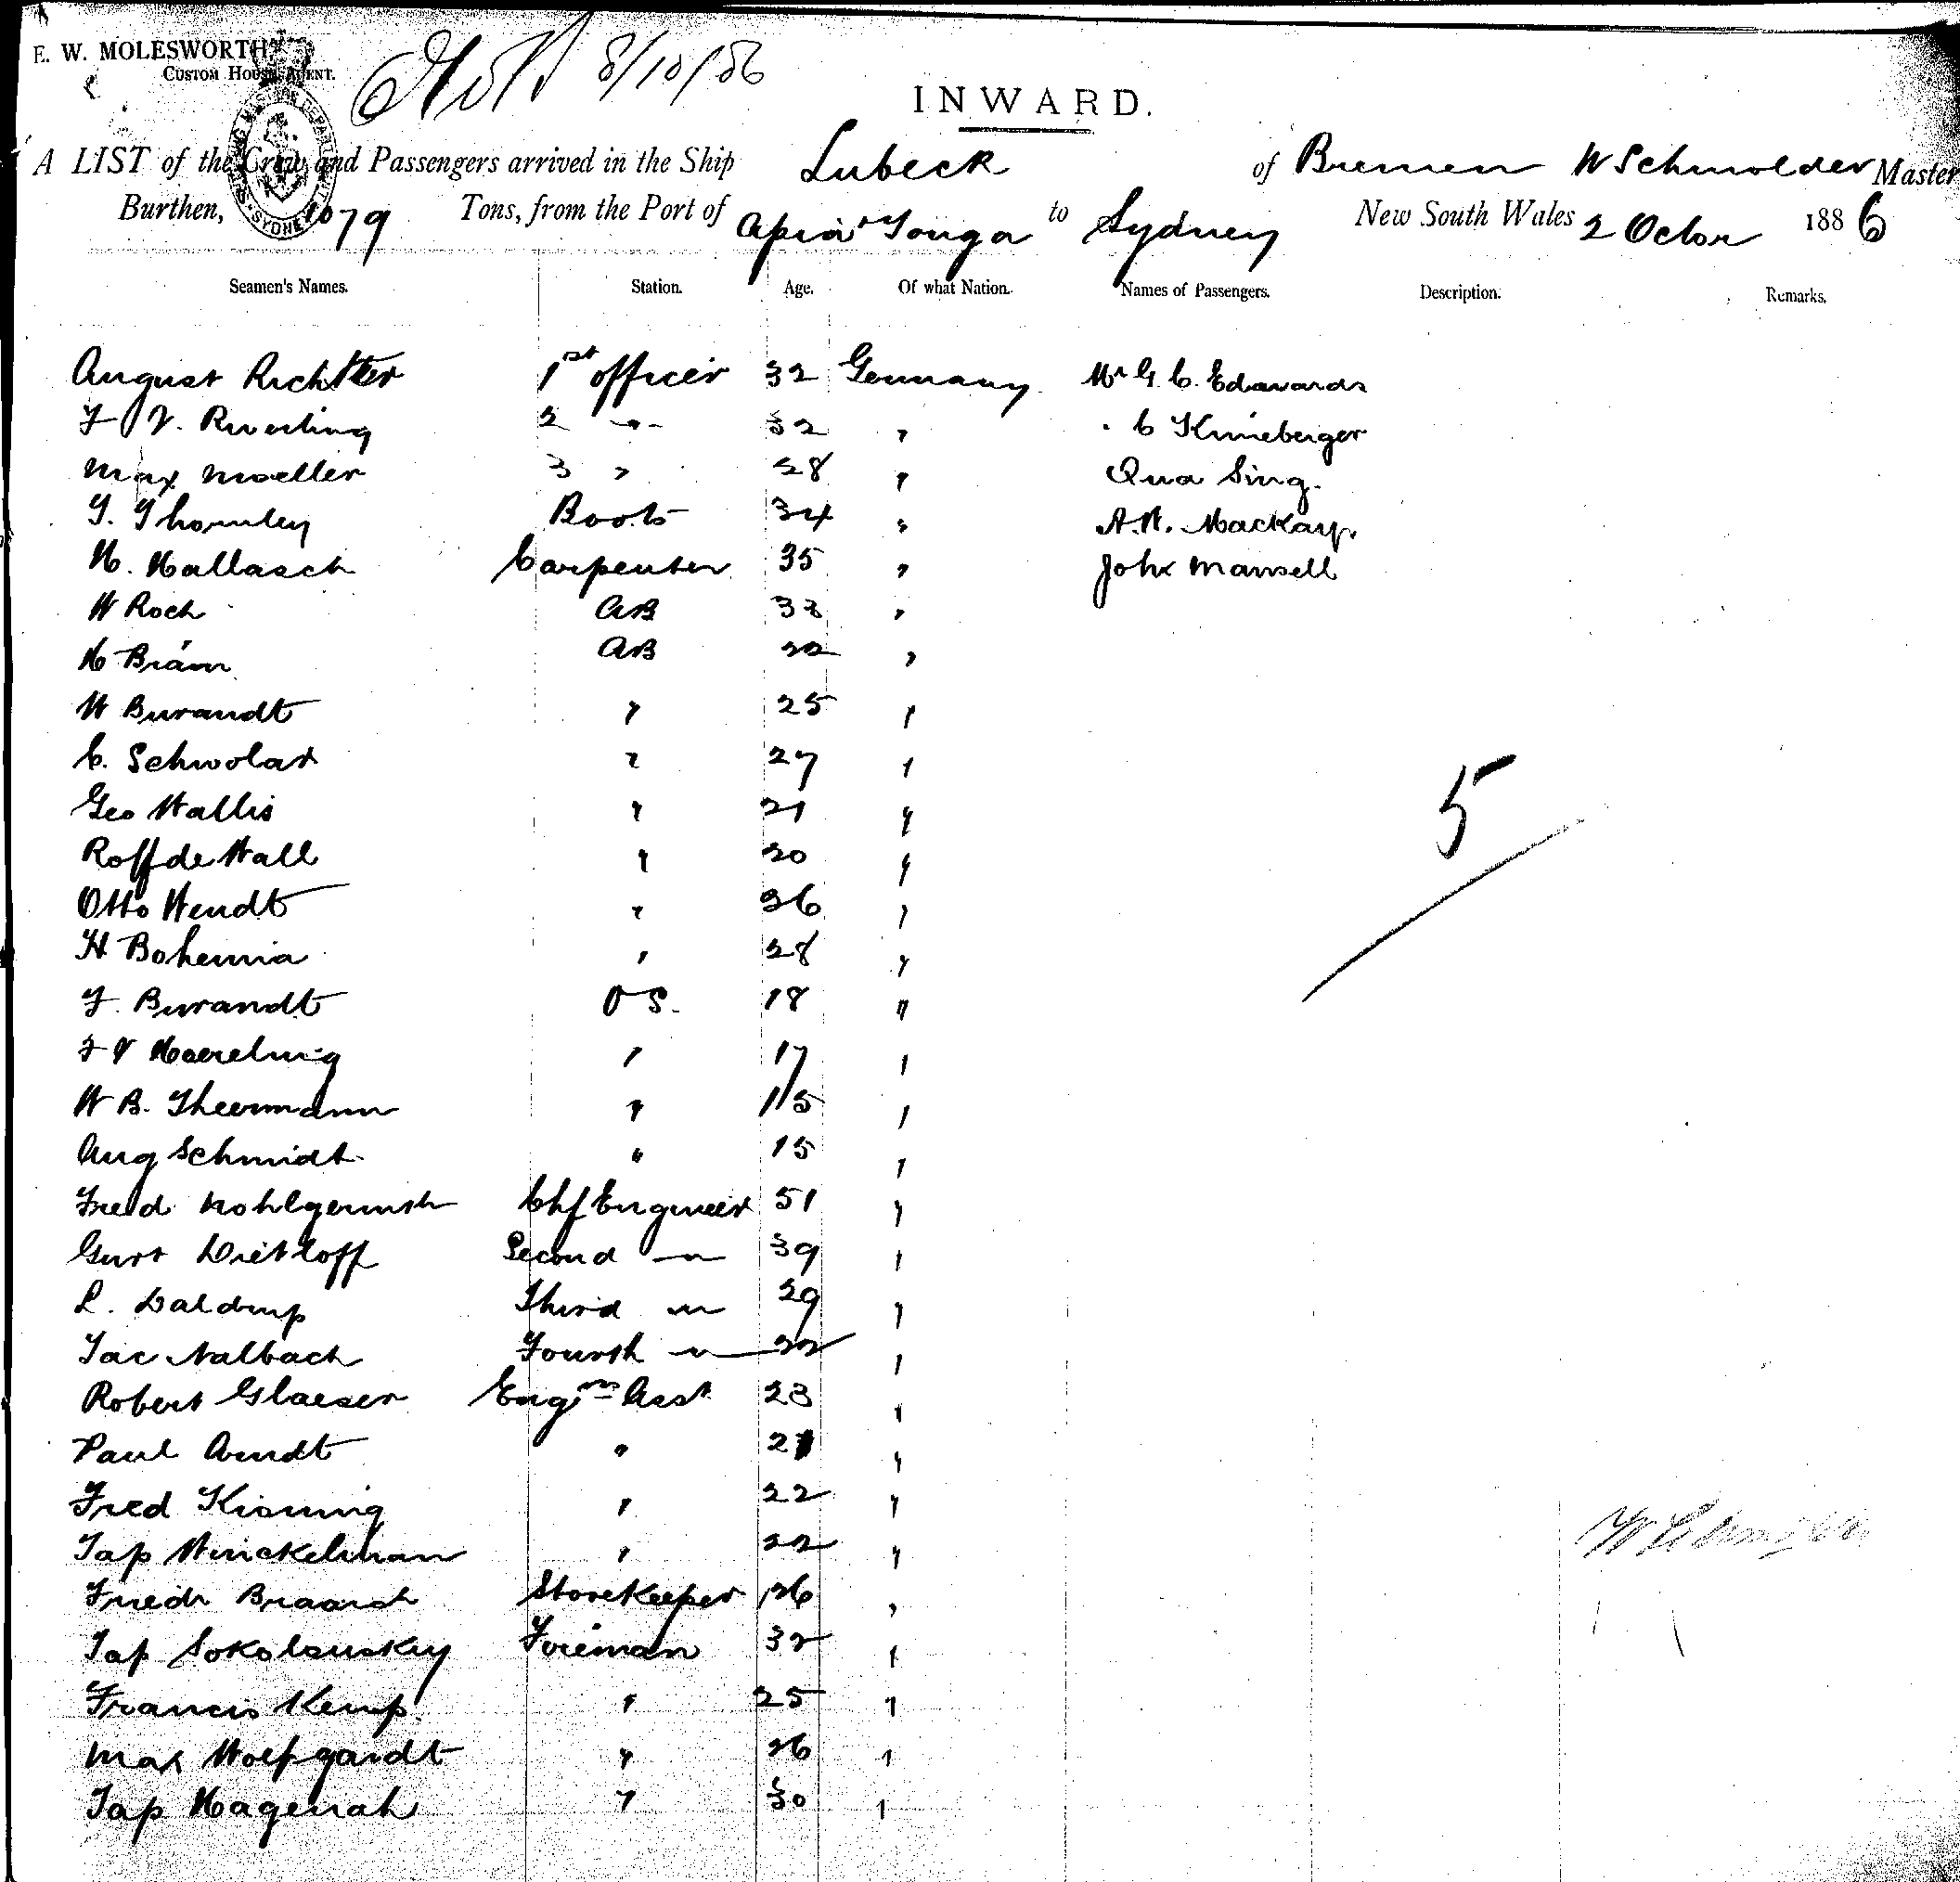 E. W. MOLESWORTH
CUSTOM HOUSE AGENT.
8/10/86
INWARD.
A LIST of the Crew and Passengers arrived in the Ship Lubeck of Bremen W Schmolder Master
Burthen, 1079 Tons, from the Port of Apia & Tonga to Sydney New South Wales 2 Octor 1886
Seamen's Names. Station. Age. Of what Nation. Names of Passengers. Description. Remarks.
August Richtter 1st officer 32 Germany Mr G. C. Edawards
2 " 32 " " C Kinneberger
Max Moeller 3 " 28 " Qua Sing.
T. Thornley Boots 34 " A. H. Mackay.
H. Hallasch Carpenter 35 " John Mansell
W Roch AB 32 "
H Bram AB 22 "
W Burandt " 25 "
C. Schwolar " 27 "
Geo Wallis " 21 "
Roff de Wall " 20 "
Otto Wendt " 26 "
H Bohemia " 28 "
5
F. Burandt OS. 18 "
" 17 "
W B. Theermann " 15 "
Aug Schmidt " 15 "
Fred Chf Engineer 51 "
Gurt Dietloff Second " 39 "
L. Daldrup Third " 29 "
Jac Nalbach Fourth " 22 "
Robert Glaeser Engrs Asst 23 "
Paul Arndt " 21 "
Fred Kissing " 22 "
Jap Winckelman " 22 "
Friedr Braasch Storekeeper 26 "
Jap Sokolauskey Fireman 32 "
Francis Kemp. " 25 "
Max Wolfgardt " 26 "
Jap Hagenah " 30 "